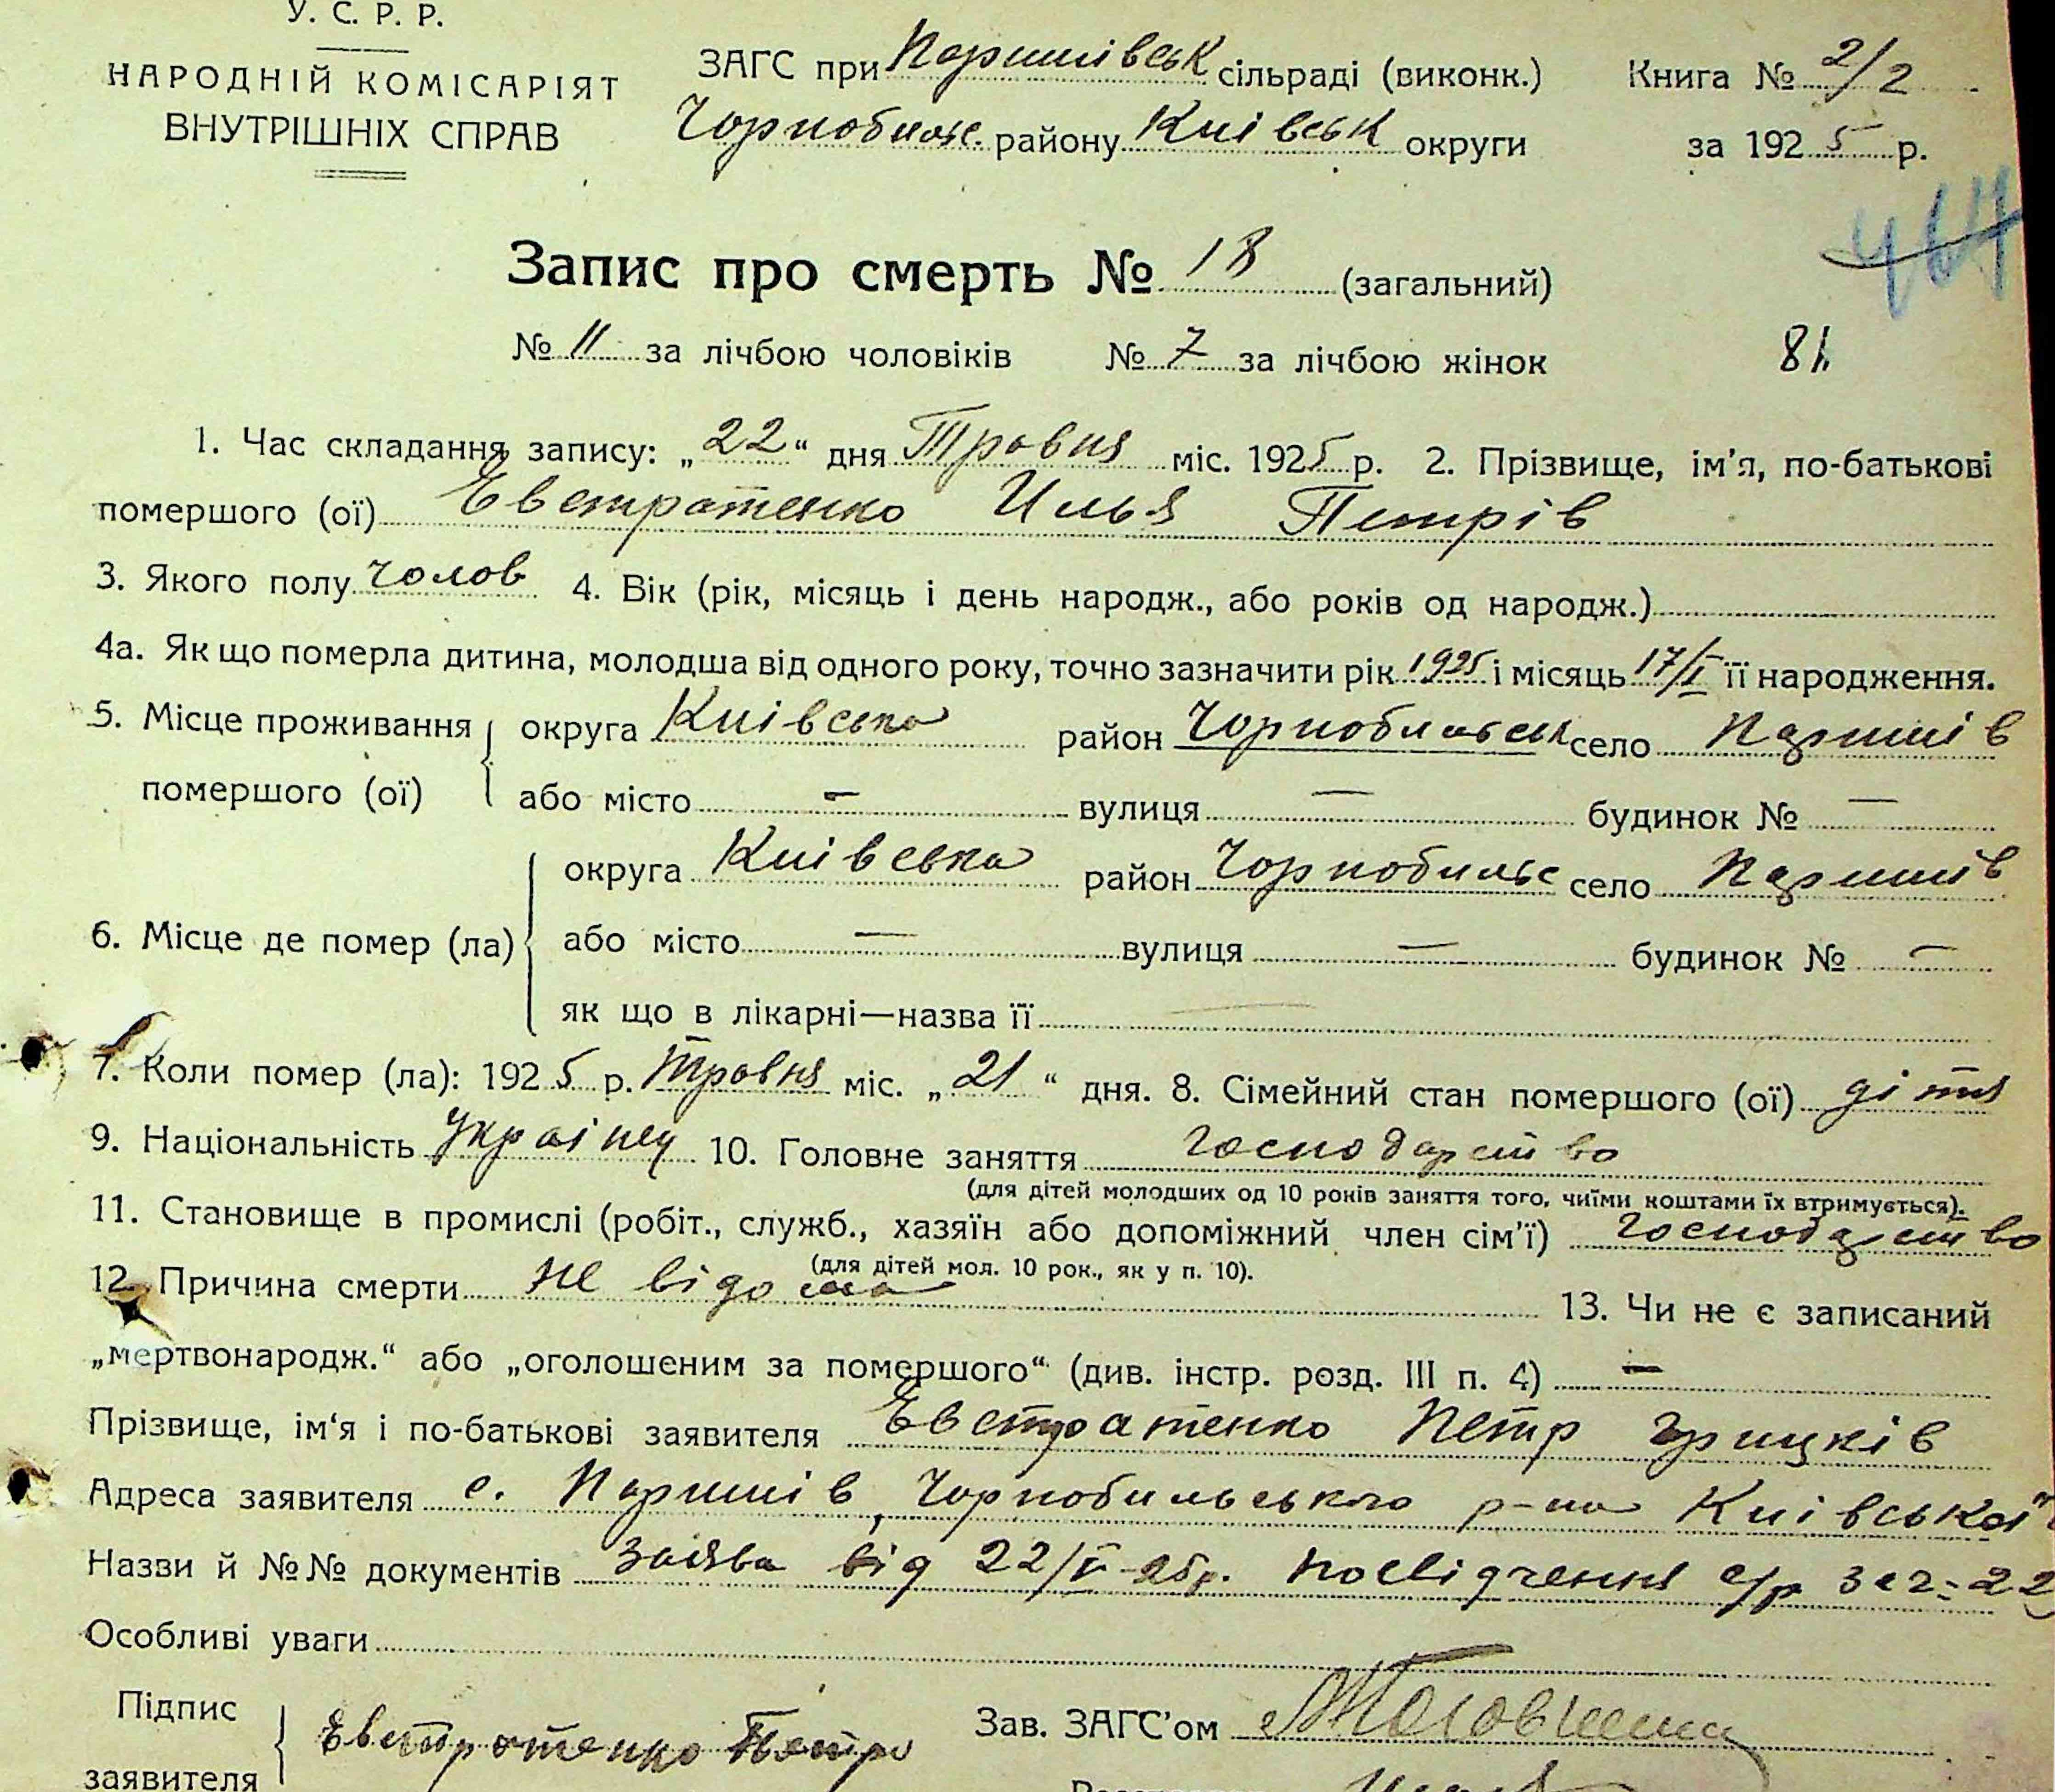 У. С. Р. Р.
НАРОДНІЙ КОМІСАРІЯТ
ВНУТРІШНІХ СПРАВ
ЗАГС при Паришівськ сільраді (виконк.)
Чорнобильс. району Київськ округи
Книга № 2/2
за 1925 р.
464
Запис про смерть № 18 (загальний)
№ 11 за лічбою чоловіків № 7 за лічбою жінок
81.
1. Час складання запису: „22“ дня Травня міс. 1925 р. 2. Прізвище, ім'я, по-батькові
помершого (ої) Евстратенко Илья Петрів
3. Якого полу чолов 4. Вік (рік, місяць і день народж., або років од народж.)
4а. Як що померла дитина, молодша від одного року, точно зазначити рік 1925 і місяць 17/I її народження.
5. Місце проживання округа Київська район Чорнобильськ село Паришів
помершого (ої) або місто — вулиця — будинок № —
округа Київська район Чорнобильс село Паришів
6. Місце де помер (ла) або місто — вулиця — будинок № —
як що в лікарні—назва її —
7. Коли помер (ла): 1925 р. Травня міс. „21“ дня. 8. Сімейний стан помершого (ої) дітя
9. Національність Україنец 10. Головне заняття господарство
(для дітей молодших од 10 років заняття того, чиїми коштами їх втримується).
11. Становище в промислі (робіт., служб., хазяїн або допоміжний член сім'ї) господарство
(для дітей мол. 10 рок., як у п. 10).
12. Причина смерти не відома 13. Чи не є записаний
„мертвонародж.“ або „оголошеним за помершого“ (див. інстр. розд. III п. 4) —
Прізвище, ім'я і по-батькові заявителя Евстратенко Петр Грицків
Адреса заявителя с. Паришів, Чорнобильського р-на Київської
Назви й №№ документів Заява від 22/V-25р. посвідчення с/р за г= 22
Особливі уваги
Підпис
заявителя
Евстротенко Петро
Зав. ЗАГС'ом